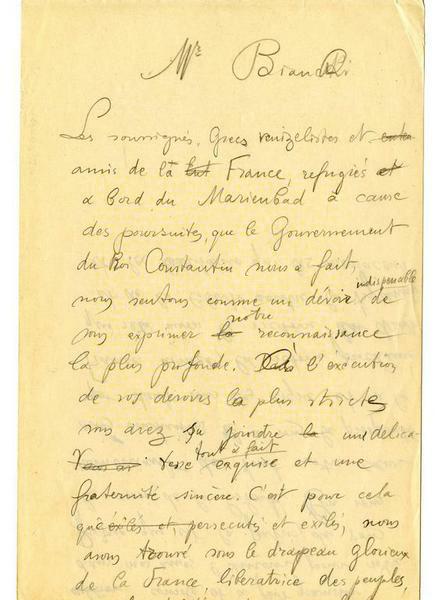 Mr Bianchi
Les soussignés, Grecs venizelistes et
amis de la France, refugiés
a bord du Marienbad à cause
des poursuites, que le Gouvernement
du Roi Constantin nous a fait,
nous sentons comme un dévoir indispensable de
vous exprimer notre reconnaissance
la plus profonde. à l'exécution
de vos devoirs la plus stricte
vous avez su joindre une délica-
tesse tout à fait exquise et une
fraternité sincère. C'est pour cela
que persecutés et exilés, nous
avons trouvé sous le drapeau glorieux
de la France, liberatrice des peuples,